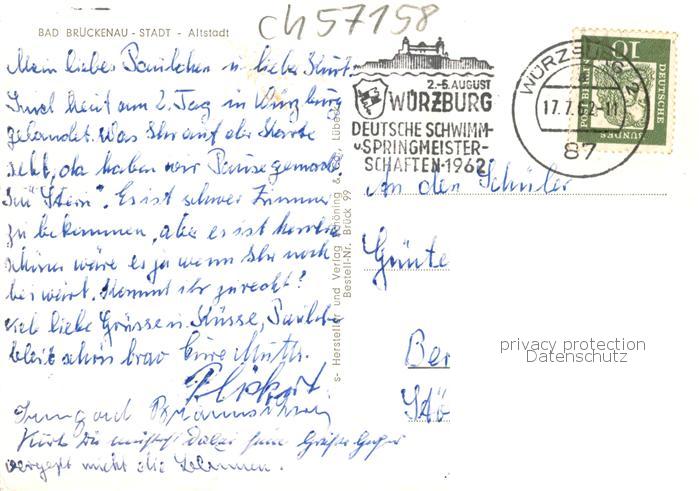 ch57158
BAD BRÜCKENAU - STADT - Altstadt
Mein liebes u. lieber Kurt
Sind heut am 2. Tag in Würzburg
gelandet. Was Ihr auf der Karte
seht, da haben wir Pause gemacht
Im "Stern". Es ist schwer Zimmer
zu bekommen, aber es ist herrlich
schöner wäre es ja wenn Ihr noch
bei wärt. Kommt ihr zurecht?
Viel liebe Grüsse u. Küsse,
bleib schön brav Eure Mutti.
Irmgard
Kurt Du
vergeßt nicht die Blumen.
s- Hersteller und Verlag Schöning & Co., Lübeck
Bestell-Nr. Brück 99
2.-5. AUGUST
WÜRZBURG
DEUTSCHE SCHWIMM-
u. SPRINGMEISTER-
SCHAFTEN·1962
WÜRZBURG 2
17.7.62-11
87
10
DEUTSCHE
BUNDES
An den Schüler
Günte
Ber
Stö
privacy protection
Datenschutz